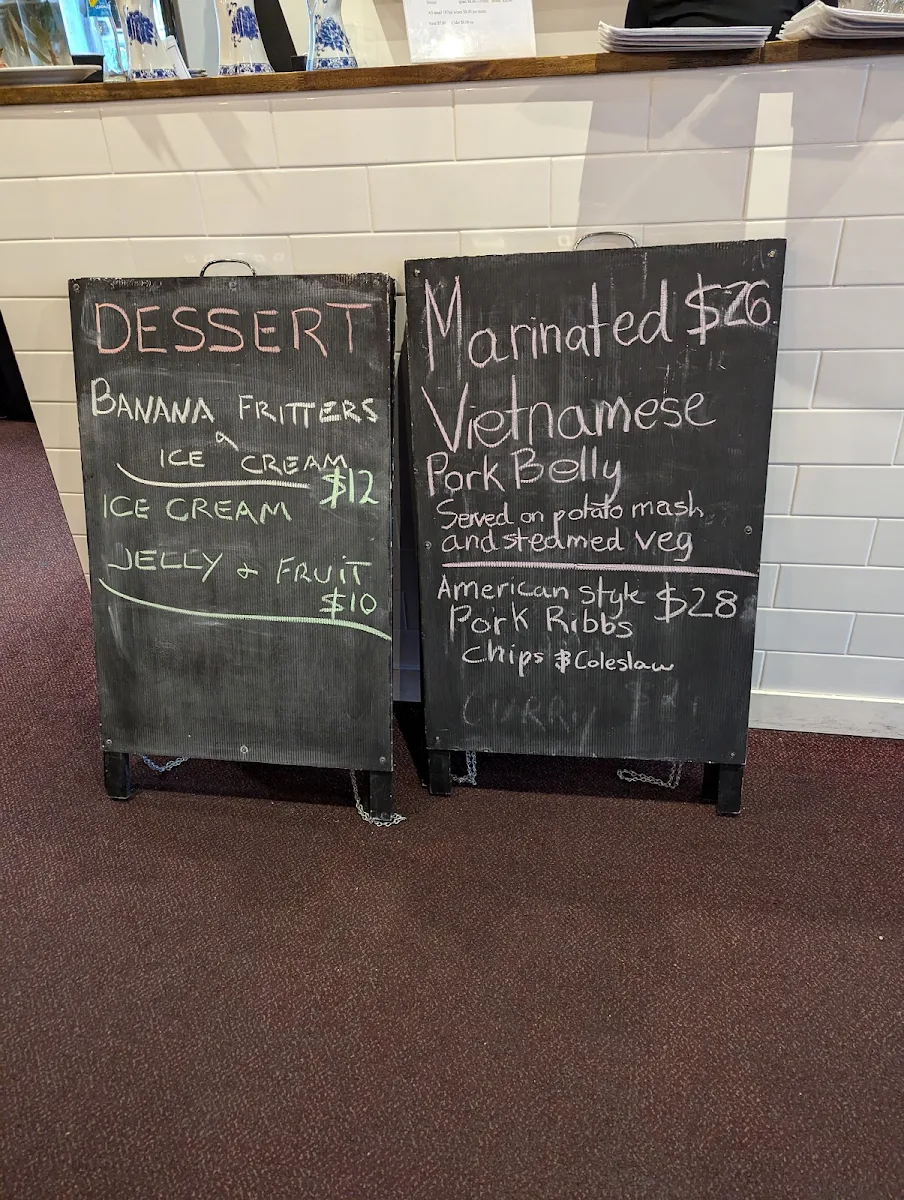 DESSERT
BANANA FRITTERS
ICE CREAM
$12
ICE CREAM
JELLY & FRUIT
$10
Marinated $26
Vietnamese
Pork Belly
Served on potato mash
and steamed veg
American style $28
Pork Ribbs
Chips & Coleslaw
CURRY